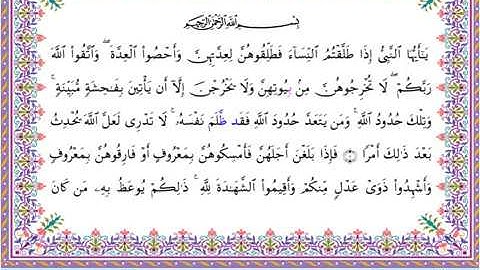 بِسْمِ اللَّهِ الرَّحْمَٰنِ الرَّحِيمِ
يَٰٓأَيُّهَا ٱلنَّبِىُّ إِذَا طَلَّقْتُمُ ٱلنِّسَآءَ فَطَلِّقُوهُنَّ لِعِدَّتِهِنَّ وَأَحْصُوا۟ ٱلْعِدَّةَ ۖ وَٱتَّقُوا۟ ٱللَّهَ
رَبَّكُمْ ۖ لَا تُخْرِجُوهُنَّ مِنۢ بُيُوتِهِنَّ وَلَا يَخْرُجْنَ إِلَّآ أَن يَأْتِينَ بِفَٰحِشَةٍ مُّبَيِّنَةٍ ۚ
وَتِلْكَ حُدُودُ ٱللَّهِ ۚ وَمَن يَتَعَدَّ حُدُودَ ٱللَّهِ فَقَدْ ظَلَمَ نَفْسَهُۥ ۚ لَا تَدْرِى لَعَلَّ ٱللَّهَ يُحْدِثُ
بَعْدَ ذَٰلِكَ أَمْرًا ۝١ فَإِذَا بَلَغْنَ أَجَلَهُنَّ فَأَمْسِكُوهُنَّ بِمَعْرُوفٍ أَوْ فَارِقُوهُنَّ بِمَعْرُوفٍ
وَأَشْهِدُوا۟ ذَوَىْ عَدْلٍ مِّنكُمْ وَأَقِيمُوا۟ ٱلشَّهَٰدَةَ لِلَّهِ ۚ ذَٰلِكُمْ يُوعَظُ بِهِۦ مَن كَانَ